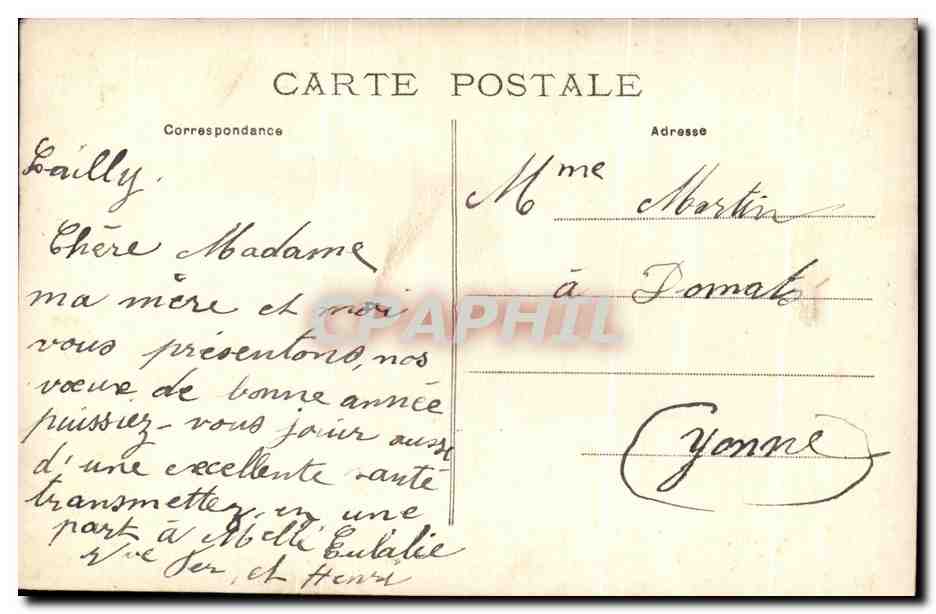 CARTE POSTALE
Correspondance
Adresse
Lailly.
Chère Madame
ma mère et moi
vous présentons, nos
vœux de bonne année
puissiez-vous jouir aussi
d'une excellente santé
transmettez en une
part à Melle Eulalie
et Henri
Mme Martin
à Domats
Yonne
CPAPHIL